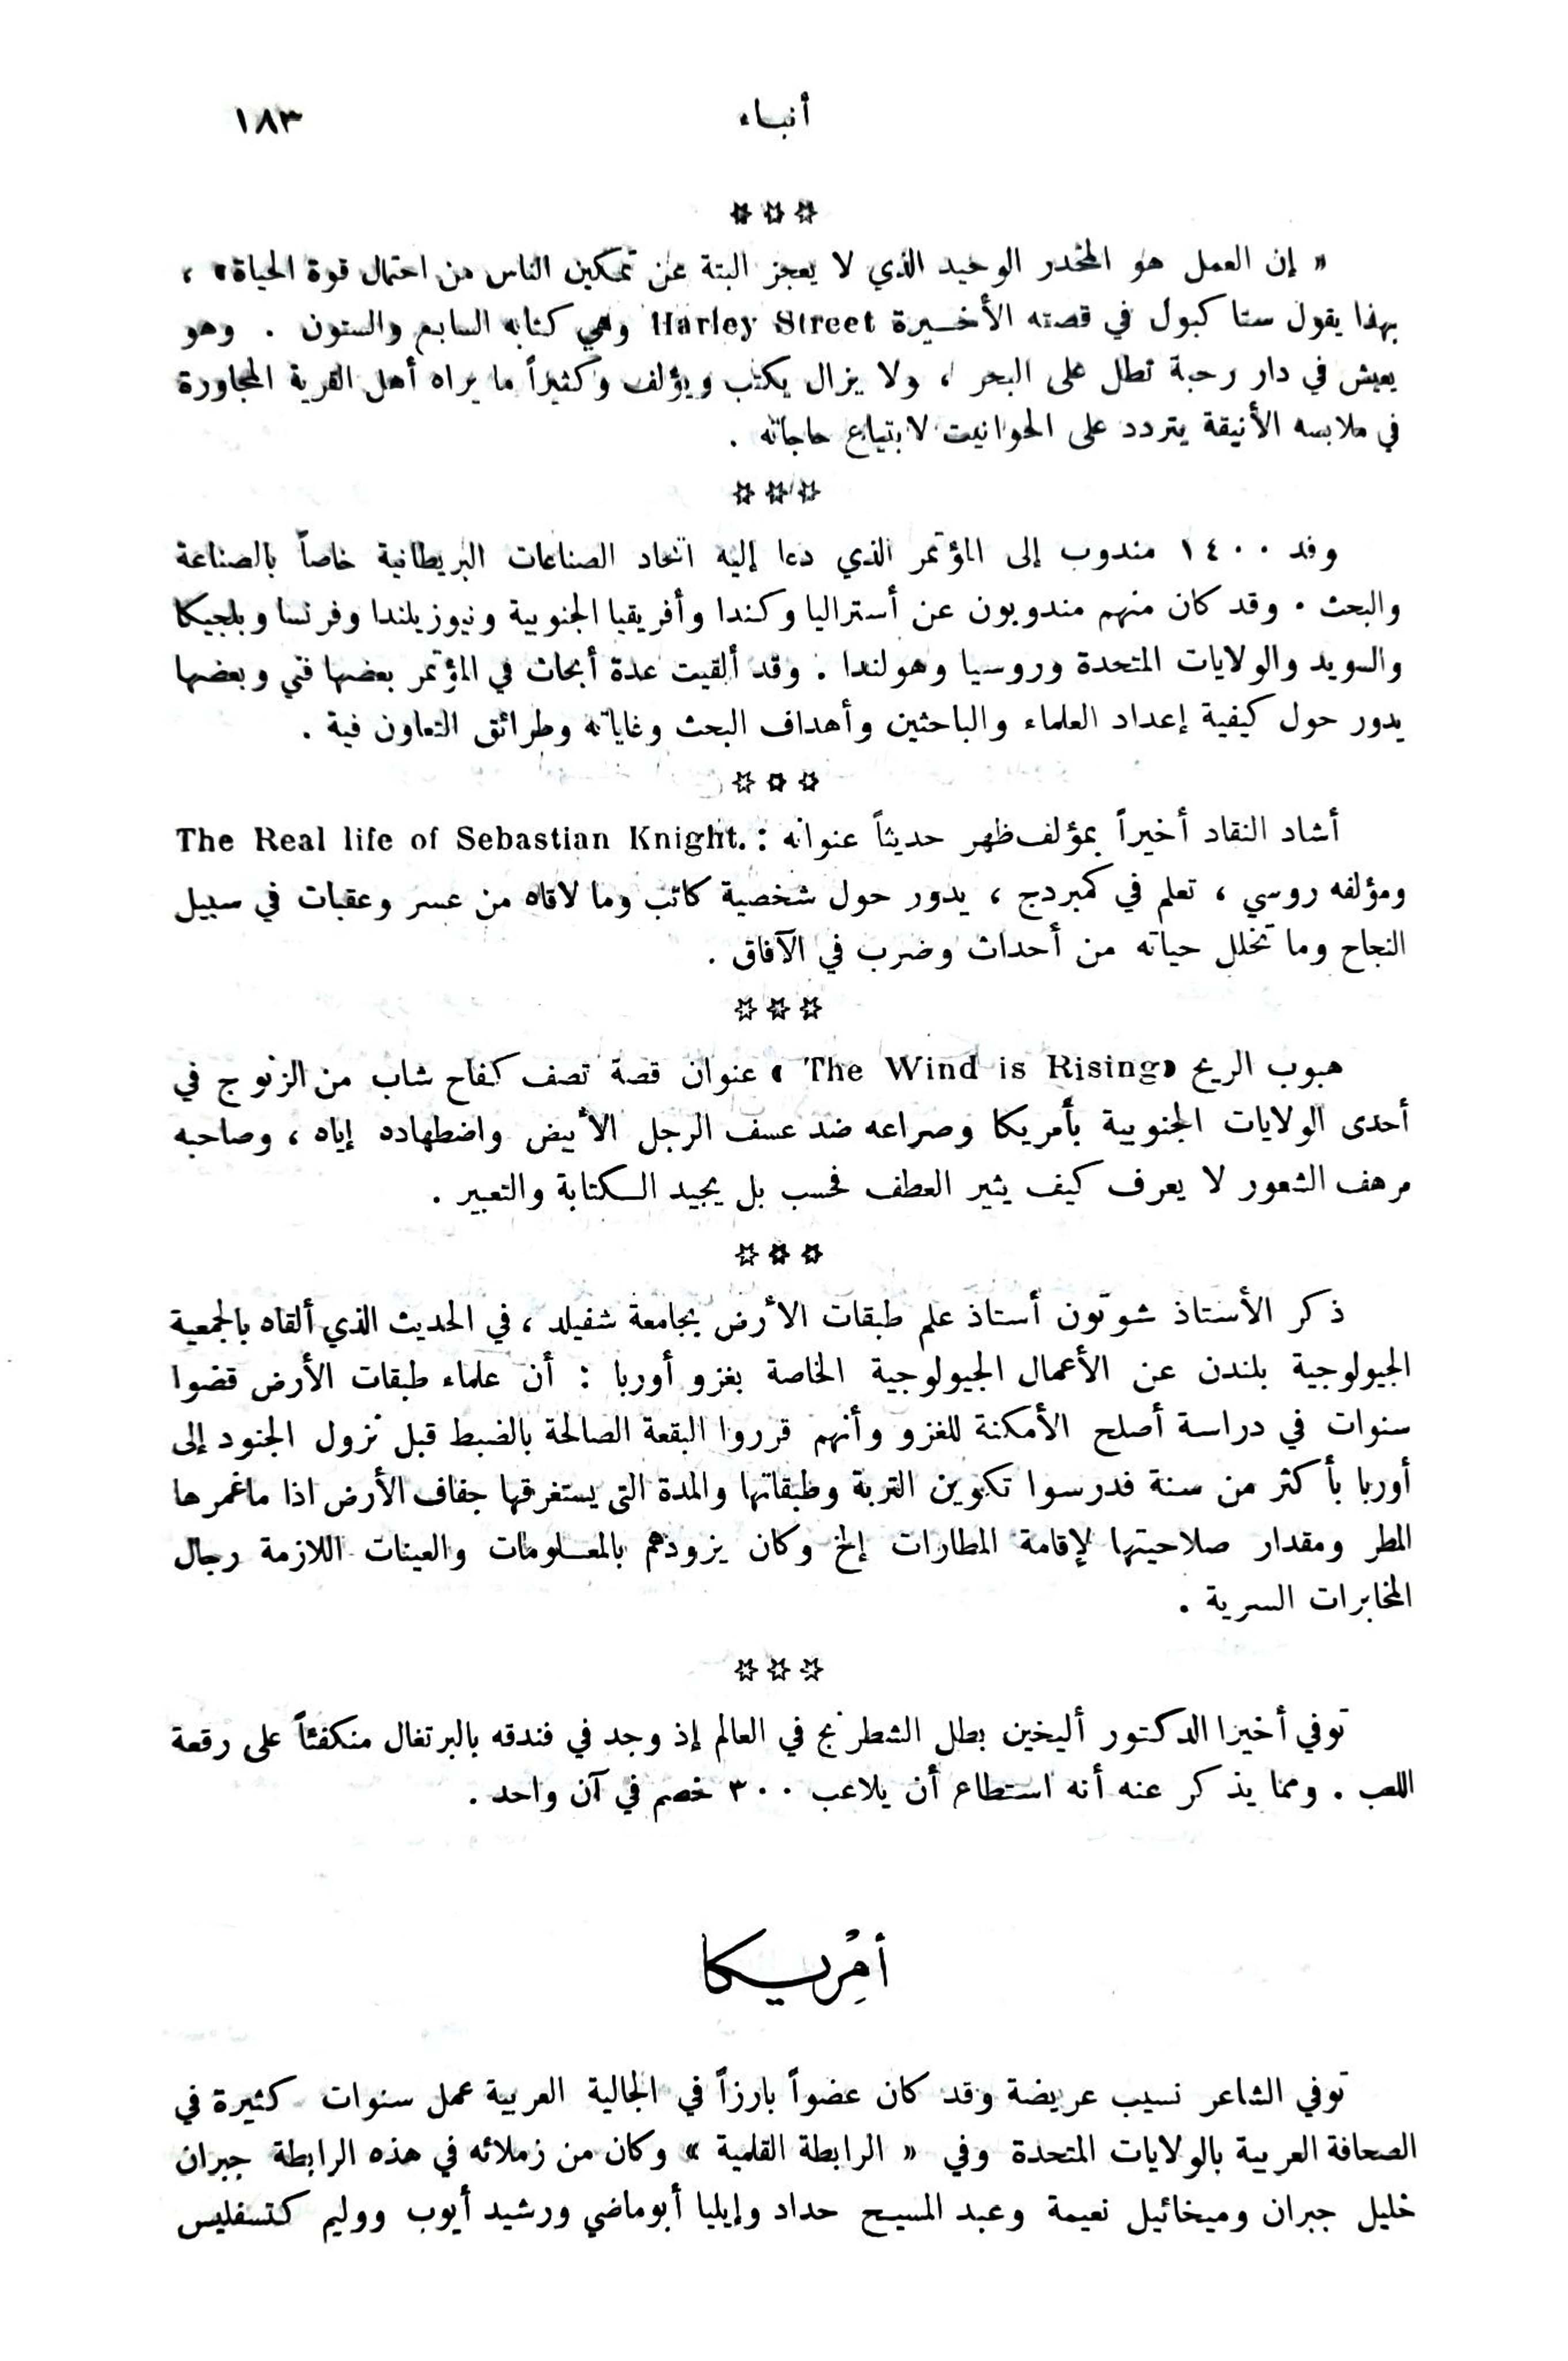 أنباء
١٨٣
* * *
« إن العمل هو المخدر الوحيد الذي لا يعجز البتة عن تمكين الناس من احتمال قوة الحياة » ،
بهذا يقول ستا كبول في قصته الأخيرة Harley Street وهي كتابه السابع والستون . وهو
يعيش في دار رحبة تطل على البحر ، ولا يزال يكتب ويؤلف وكثيراً ما يراه أهل القرية المجاورة
في ملابسه الأنيقة يتردد على الحوانيت لابتياع حاجاته .
* * *
وفد ١٤٠٠ مندوب إلى المؤتمر الذي دعا إليه اتحاد الصناعات البريطانية خاصاً بالصناعة
والبحث . وقد كان منهم مندوبون عن أستراليا وكندا وأفريقيا الجنوبية ونيوزيلندا وفرنسا وبلجيكا
والسويد والولايات المتحدة وروسيا وهولندا . وقد ألقيت عدة أبحاث في المؤتمر بعضها فني وبعضها
يدور حول كيفية إعداد العلماء والباحثين وأهداف البحث وغاياته وطرائق التعاون فية .
* * *
أشاد النقاد أخيراً بمؤلف ظهر حديثاً عنوانه : The Real life of Sebastian Knight.
ومؤلفه روسي ، تعلم في كمبردج ، يدور حول شخصية كاتب وما لاقاه من عسر وعقبات في سبيل
النجاح وما تخلل حياته من أحداث وضرب في الآفاق .
* * *
هبوب الريح «The Wind is Rising » عنوان قصة تصف كفاح شاب من الزنوج في
أحدى الولايات الجنوبية بأمريكا وصراعه ضد عسف الرجل الأبيض واضطهاده إياه ، وصاحبه
مرهف الشعور لا يعرف كيف يثير العطف فحسب بل يجيد الكتابة والتعبير .
* * *
ذكر الأستاذ شوتون أستاذ علم طبقات الأرض بجامعة شفيلد ، في الحديث الذي ألقاه بالجمعية
الجيولوجية بلندن عن الأعمال الجيولوجية الخاصة بغزو أوربا : أن علماء طبقات الأرض قضوا
سنوات في دراسة أصلح الأمكنة للغزو وأنهم قرروا البقعة الصالحة بالضبط قبل نزول الجنود إلى
أوربا بأكثر من سنة فدرسوا تكوين التربة وطبقاتها والمدة التى يستغرقها جفاف الأرض اذا ماغمرها
المطر ومقدار صلاحيتها لإقامة المطارات إلخ وكان يزودهم بالمعلومات والعينات اللازمة رجال
المخابرات السرية .
* * *
توفي أخيرا الدكتور أليخين بطل الشطرنج في العالم إذ وجد في فندقه بالبرتغال منكفئاً على رقعة
اللعب . ومما يذكر عنه أنه استطاع أن يلاعب ٣٠٠ خصم في آن واحد .
أمْرِيكا
توفي الشاعر نسيب عريضة وقد كان عضواً بارزاً في الجالية العربية عمل سنوات كثيرة في
الصحافة العربية بالولايات المتحدة وفي « الرابطة القلمية » وكان من زملائه في هذه الرابطة جبران
خليل جبران وميخائيل نعيمة وعبد المسيح حداد وإيليا أبوماضي ورشيد أيوب ووليم كتسفليس